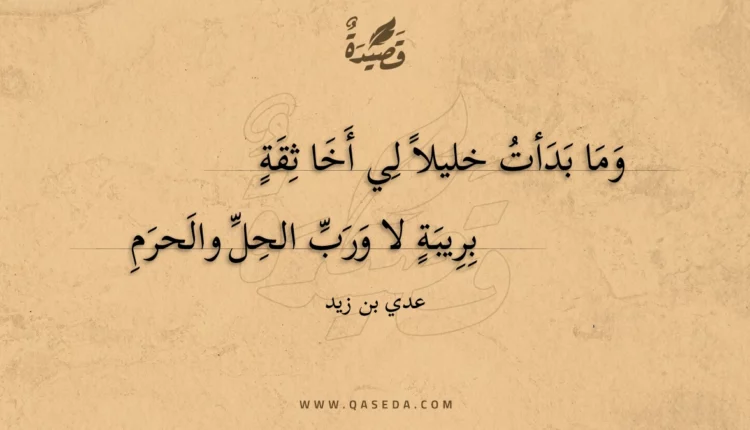 قَصِيدَةٌ
وَمَا بَدَأتُ خليلاً لِي أَخَا ثِقَةٍ
بِرِيبَةٍ لا وَرَبِّ الحِلِّ والَحرَمِ
عدي بن زيد
WWW.QASEDA.COM